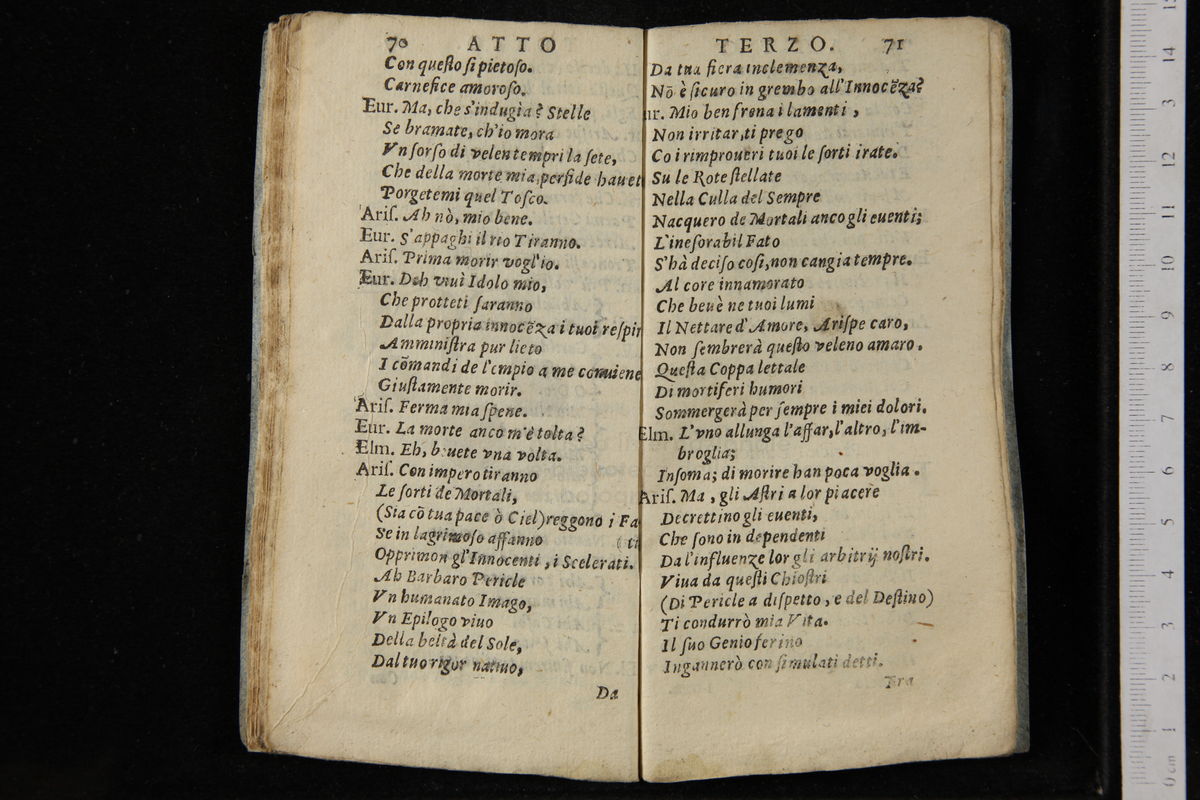 70 ATTO
Con questo si pietoso.
Carnefice amoroso.
Eur. Ma, che s'indugia? Stelle
Se bramate, ch'io mora
Vn sorso di velen tempri la sete,
Che della morte mia, perfide hauet
Porgetemi quel Tosco.
Aris. Ah nò, mio bene.
Eur. S'appaghi il rio Tiranno.
Aris. Prima morir vogl'io.
Eur. Deh viui Idolo mio,
Che protteti saranno
Dalla propria innocēza i tuoi respir
Amministra pur lieto
I cōmandi de l'empio a me conuiene
Giustamente morir.
Aris. Ferma mia spene.
Eur. La morte anco m'è tolta?
Elm. Eh, beuete vna volta.
Aris. Con impero tiranno
Le sorti de Mortali,
(Sia cō tua pace ò Ciel) reggono i Fa
Se in lagrimoso affanno (ti
Opprimon gl'Innocenti, i Scelerati.
Ah Barbaro Pericle
Vn humanato Imago,
Vn Epilogo viuo
Della beltà del Sole,
Dal tuo rigor natiuo,
Da
TERZO. 71
Da tua fiera inclemenza,
Nō è sicuro in grembo all'Innocēza?
ur. Mio ben frena i lamenti,
Non irritar, ti prego
Co i rimproueri tuoi le sorti irate.
Su le Rote stellate
Nella Culla del Sempre
Nacquero de Mortali anco gli euenti;
L'inesorabil Fato
S'hà deciso così, non cangia tempre.
Al core innamorato
Che beuè ne tuoi lumi
Il Nettare d'Amore, Arispe caro,
Non sembrerà questo veleno amaro.
Questa Coppa lettale
Di mortiferi humori
Sommergerà per sempre i miei dolori.
Elm. L'vno allunga l'affar, l'altro, l'im-
broglia;
Insoma; di morire han poca voglia.
Aris. Ma, gli Astri a lor piacere
Decrettino gli euenti,
Che sono in dependenti
Da l'influenze lor gli arbitrij nostri.
Viua da questi Chiostri
(Di Pericle a dispetto, e del Destino)
Ti condurrò mia Vita.
Il suo Genio ferino
Ingannerò con simulati detti.
Fra
0 cm 1 2 3 4 5 6 7 8 9 10 11 12 3 14 15